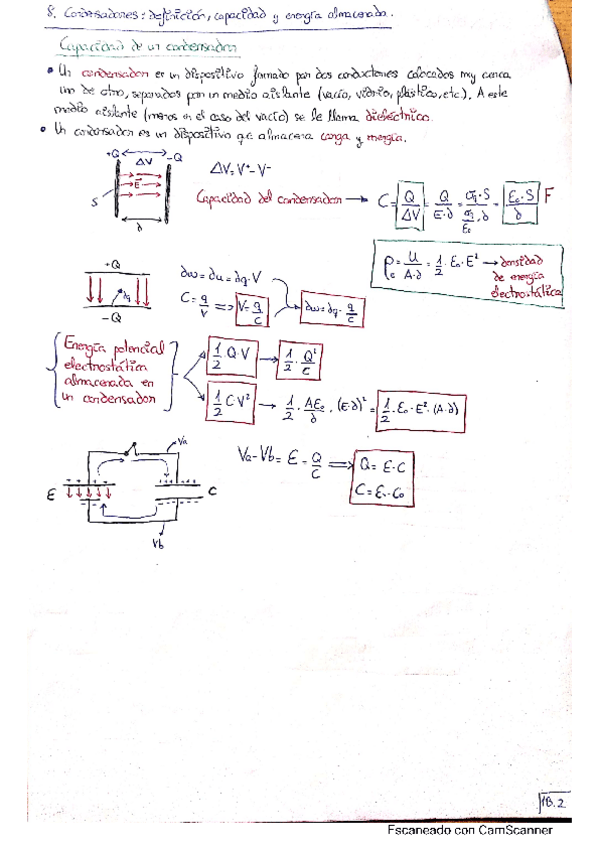 8. Condensadores: definición, capacidad y energía almacenada.
Capacidad de un condensador
• Un condensador es un dispositivo formado por dos conductores colocados muy cerca
uno de otro, separados por un medio aislante (vacío, vidrio, plástico, etc.). A este
medio aislante (menos en el caso del vacío) se le llama dieléctrico.
• Un condensador es un dispositivo q.e almacena carga y energía.
+Q ΔV -Q
E
S
d
ΔV = V⁺ - V⁻
Capacidad del condensador → C = Q/ΔV = Q/(E·d) = = (E₀·S)/d F
ρe = U/(A·d) = 1/2 · E₀ · E² → densidad
de energía
electrostática
+Q
dq
-Q
dw = du = dq · V
C = q/V ⇒ V = q/C
dw = dq · q/C
Energía potencial
electrostática
almacenada en
un condensador
1/2 Q·V → 1/2 · Q²/C
1/2 C·V² → 1/2 · AE₀/d · (E·d)² = 1/2 · E₀ · E² · (A·d)
Va
E
C
Vb
Va - Vb = E = Q/C ⇒ Q = E·C
C = Er·C₀
1B.2
Escaneado con CamScanner